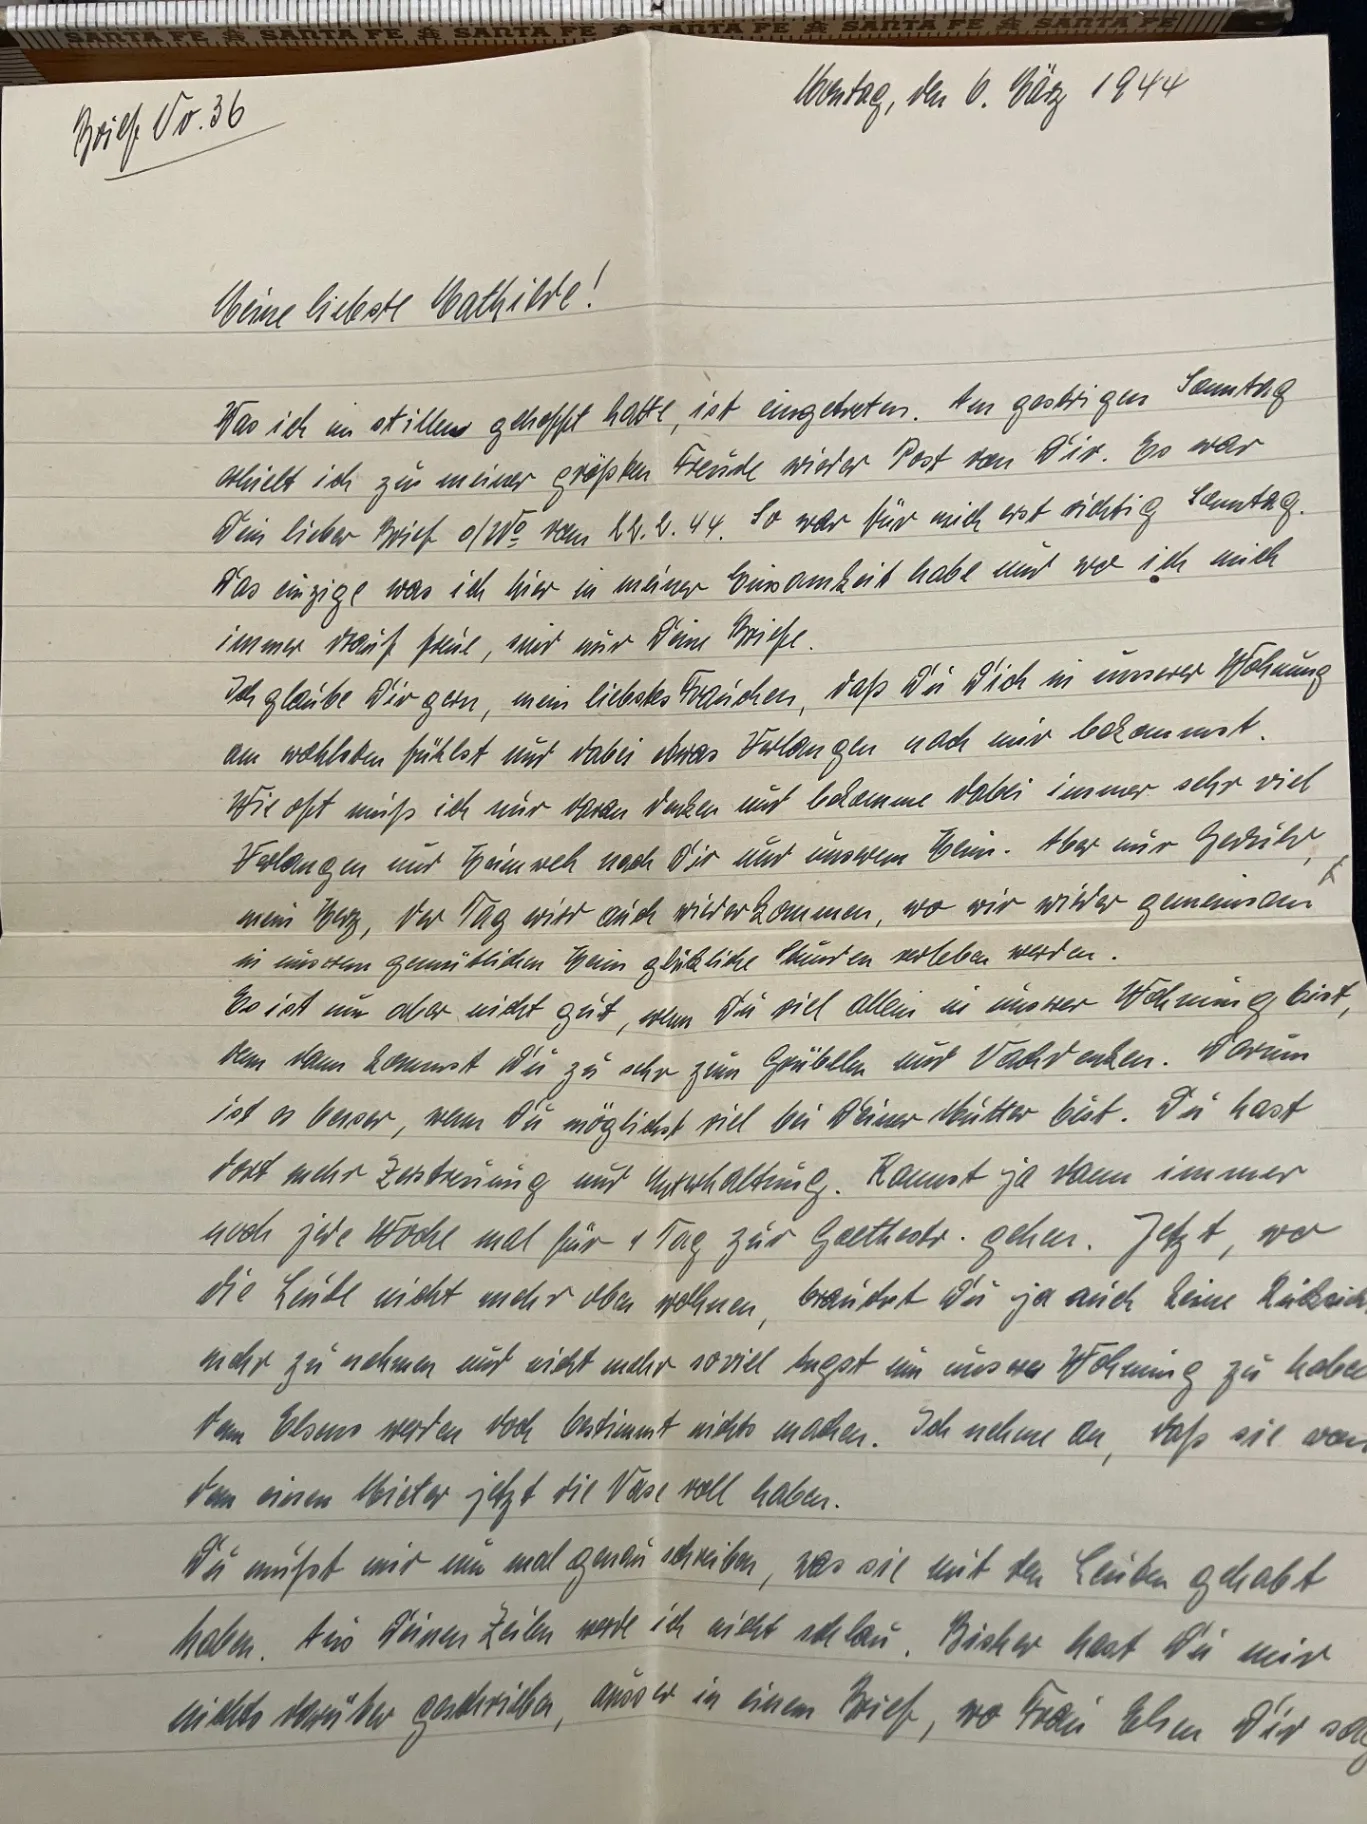 SANTA FE SANTA FE SANTA FE SANTA FE SANTA FE SANTA FE
Brief No. 36
Montag, den 6. März 1944
Meine liebste Mathilde!
Was ich im stillen gehofft hatte, ist eingetreten. Am gestrigen Sonntag
erhielt ich zu meiner größten Freude wieder Post von Dir. Es war
Dein lieber Brief o/No vom 22.2.44. So war für mich erst richtig Sonntag.
Das einzige was ich hier in meiner Einsamkeit habe und wo ich mich
immer drauf freue, sind nur Deine Briefe.
Ich glaube Dir gern, mein liebstes Frauchen, daß Du Dich in unserer Wohnung
am wohlsten fühlst und dabei etwas Verlangen nach mir bekommst.
Wie oft muß ich nur daran denken und bekomme dabei immer sehr viel
Verlangen und Heimweh nach Dir und unserem Heim. Aber nur Geduld,
mein Herz, der Tag wird auch wiederkommen, wo wir wieder gemeinsam
in unserem gemütlichen Heim glückliche Stunden verleben werden.
Es ist nun aber nicht gut, wenn Du viel allein in unserer Wohnung bist,
denn dann kommst Du zu sehr zum Grübeln und Nachdenken. Darum
ist es besser, wenn Du möglichst viel bei Deiner Mutter bist. Du hast
dort mehr Zerstreuung und Unterhaltung. Kannst ja dann immer
noch jede Woche mal für 1 Tag zur Goethestr. gehen. Jetzt, wo
die Leute nicht mehr oben wohnen, brauchst Du ja auch keine Rücksich
mehr zu nehmen und nicht mehr soviel Angst um unsere Wohnung zu haben
denn Elsens werden doch bestimmt nichts machen. Ich nehme an, daß sie von
den einen Mieter jetzt die Nase voll haben.
Du mußt mir nun mal genau schreiben, was sie mit den Leuten gehabt
haben. Aus Deinen Zeilen werde ich nicht schlau. Bisher hast Du mir
nichts darüber geschrieben, ausser in einem Brief, wo Frau Elsen Dir